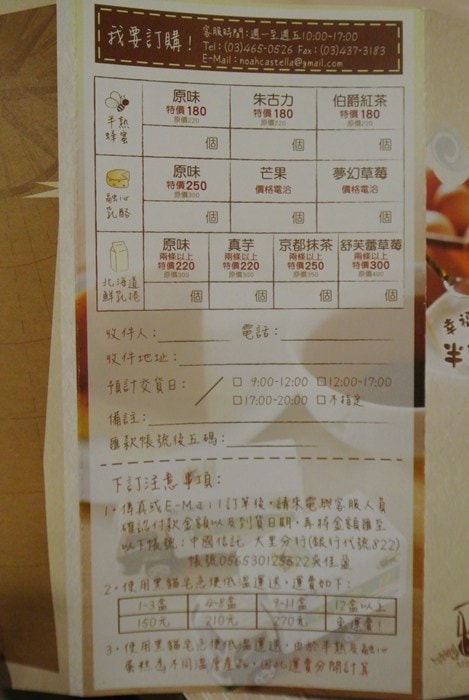 我要訂購!
客服時間:週一至週五10:00~17:00
Tel:(03)465-0526 Fax:(03)437-3183
E-Mail:noahcastella@gmail.com
半熟蜂蜜
原味 朱古力 伯爵紅茶
特價180 特價180 特價180
原價220 原價220 原價220
個 個 個
融心乳酪
原味 芒果 夢幻草莓
特價250 價格電洽 價格電洽
原價300
個 個 個
北海道鮮乳捲
原味 真芋 京都抹茶 舒芙蕾草莓
兩條以上 兩條以上 兩條以上 兩條以上
特價220 特價220 特價250 特價300
個 個 個 個
收件人: 電話:
收件地址:
預計交貨日: / □ 9:00-12:00 □12:00-17:00
□17:00-20:00 □不指定
備註:
匯款帳號後五碼:
下訂注意事項:
1.傳真或E-Mail訂單後,請來電與客服人員
確認付款金額以及到貨日期,再將金額匯至
以下帳號:中國信託 大里分行(銀行代號822)
帳號
2.使用黑貓宅急便低溫運送,運費如下:
1-3盒 4-8盒 9-11盒 12盒以上
150元 210元 270元 免運費!
3.使用黑貓宅急便低溫運送,由於半熟及融心
蛋糕為不同溫層產品,因此運費分開計算
幸福
半